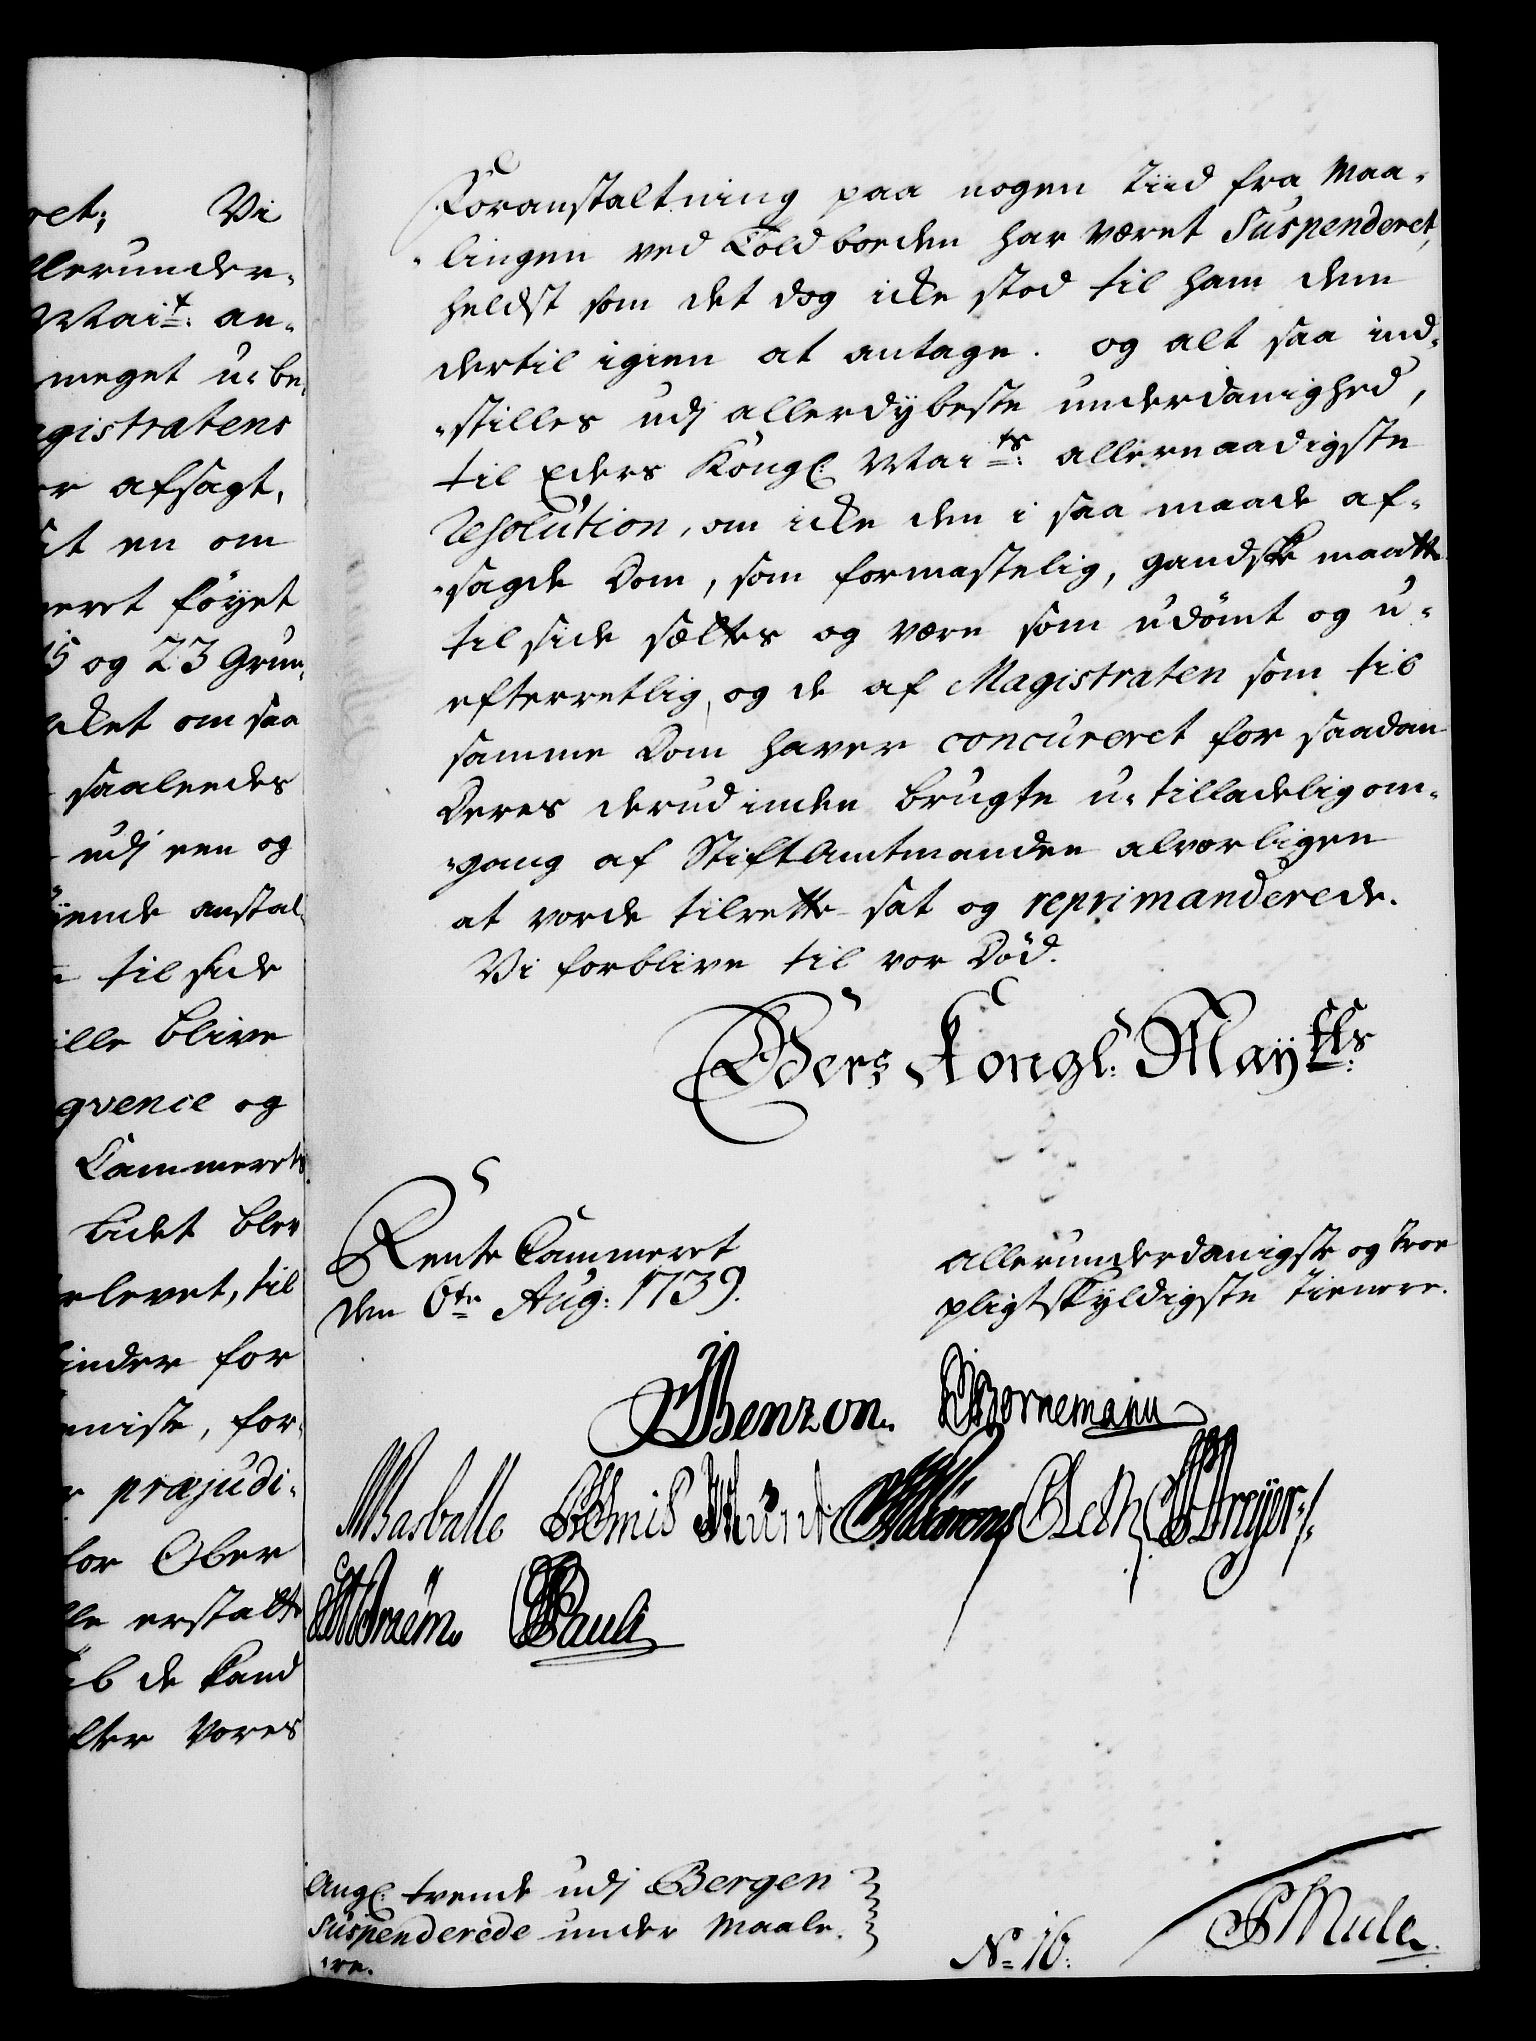 ret; Vi
llerunder-
Mait: an-
meget u-be-
gistratens
er afsagt,
it en om
eret föyet
15 og 23 Grun-
cket om saa
saaleedes
udj een og
ýende anstal-
til side
ille blive
qvence og
Cammerets
bidet blev
rlevet, til
inder for
eniste, for-
r præjudi-
for Ober
le erstatte
de kand
fter Vores
Foranstaltning paa nogen tiid fra Maa-
-lingen ved Toldboeden har været Suspenderet,
heldst som det dog icke stod til ham dem
dertil igien at antage. og alt saa ind-
-stilles udj allerdybeste underdanighed,
til Eders Kongl: Maits: allernaadigste
Resolution, om icke den i saa maade af-
-sagde Dom, som formastelig, gandske maatte
til side sættes og være som udömt og u-
efterretlig, og de af Magistraten som til
samme Dom haver concureret for saadan
Deres derudinden brugte u-tilladelig om-
-gang af Stiftamtmanden alvorligen
at vorde tilrette-sat og reprimanderede.
Vi forblive til vor Död.
Eders Kongl: Mayts:
Rente Cammeret
den 6te Aug: 1739.
allerunderdanigste og troe
pligtskyldigste tienere.
Benzon. Bornemann
Basballe Dreyer
Pauli
Angl: trende udj Bergen
Suspenderede under Maale-
-re.
No 16:
PMule